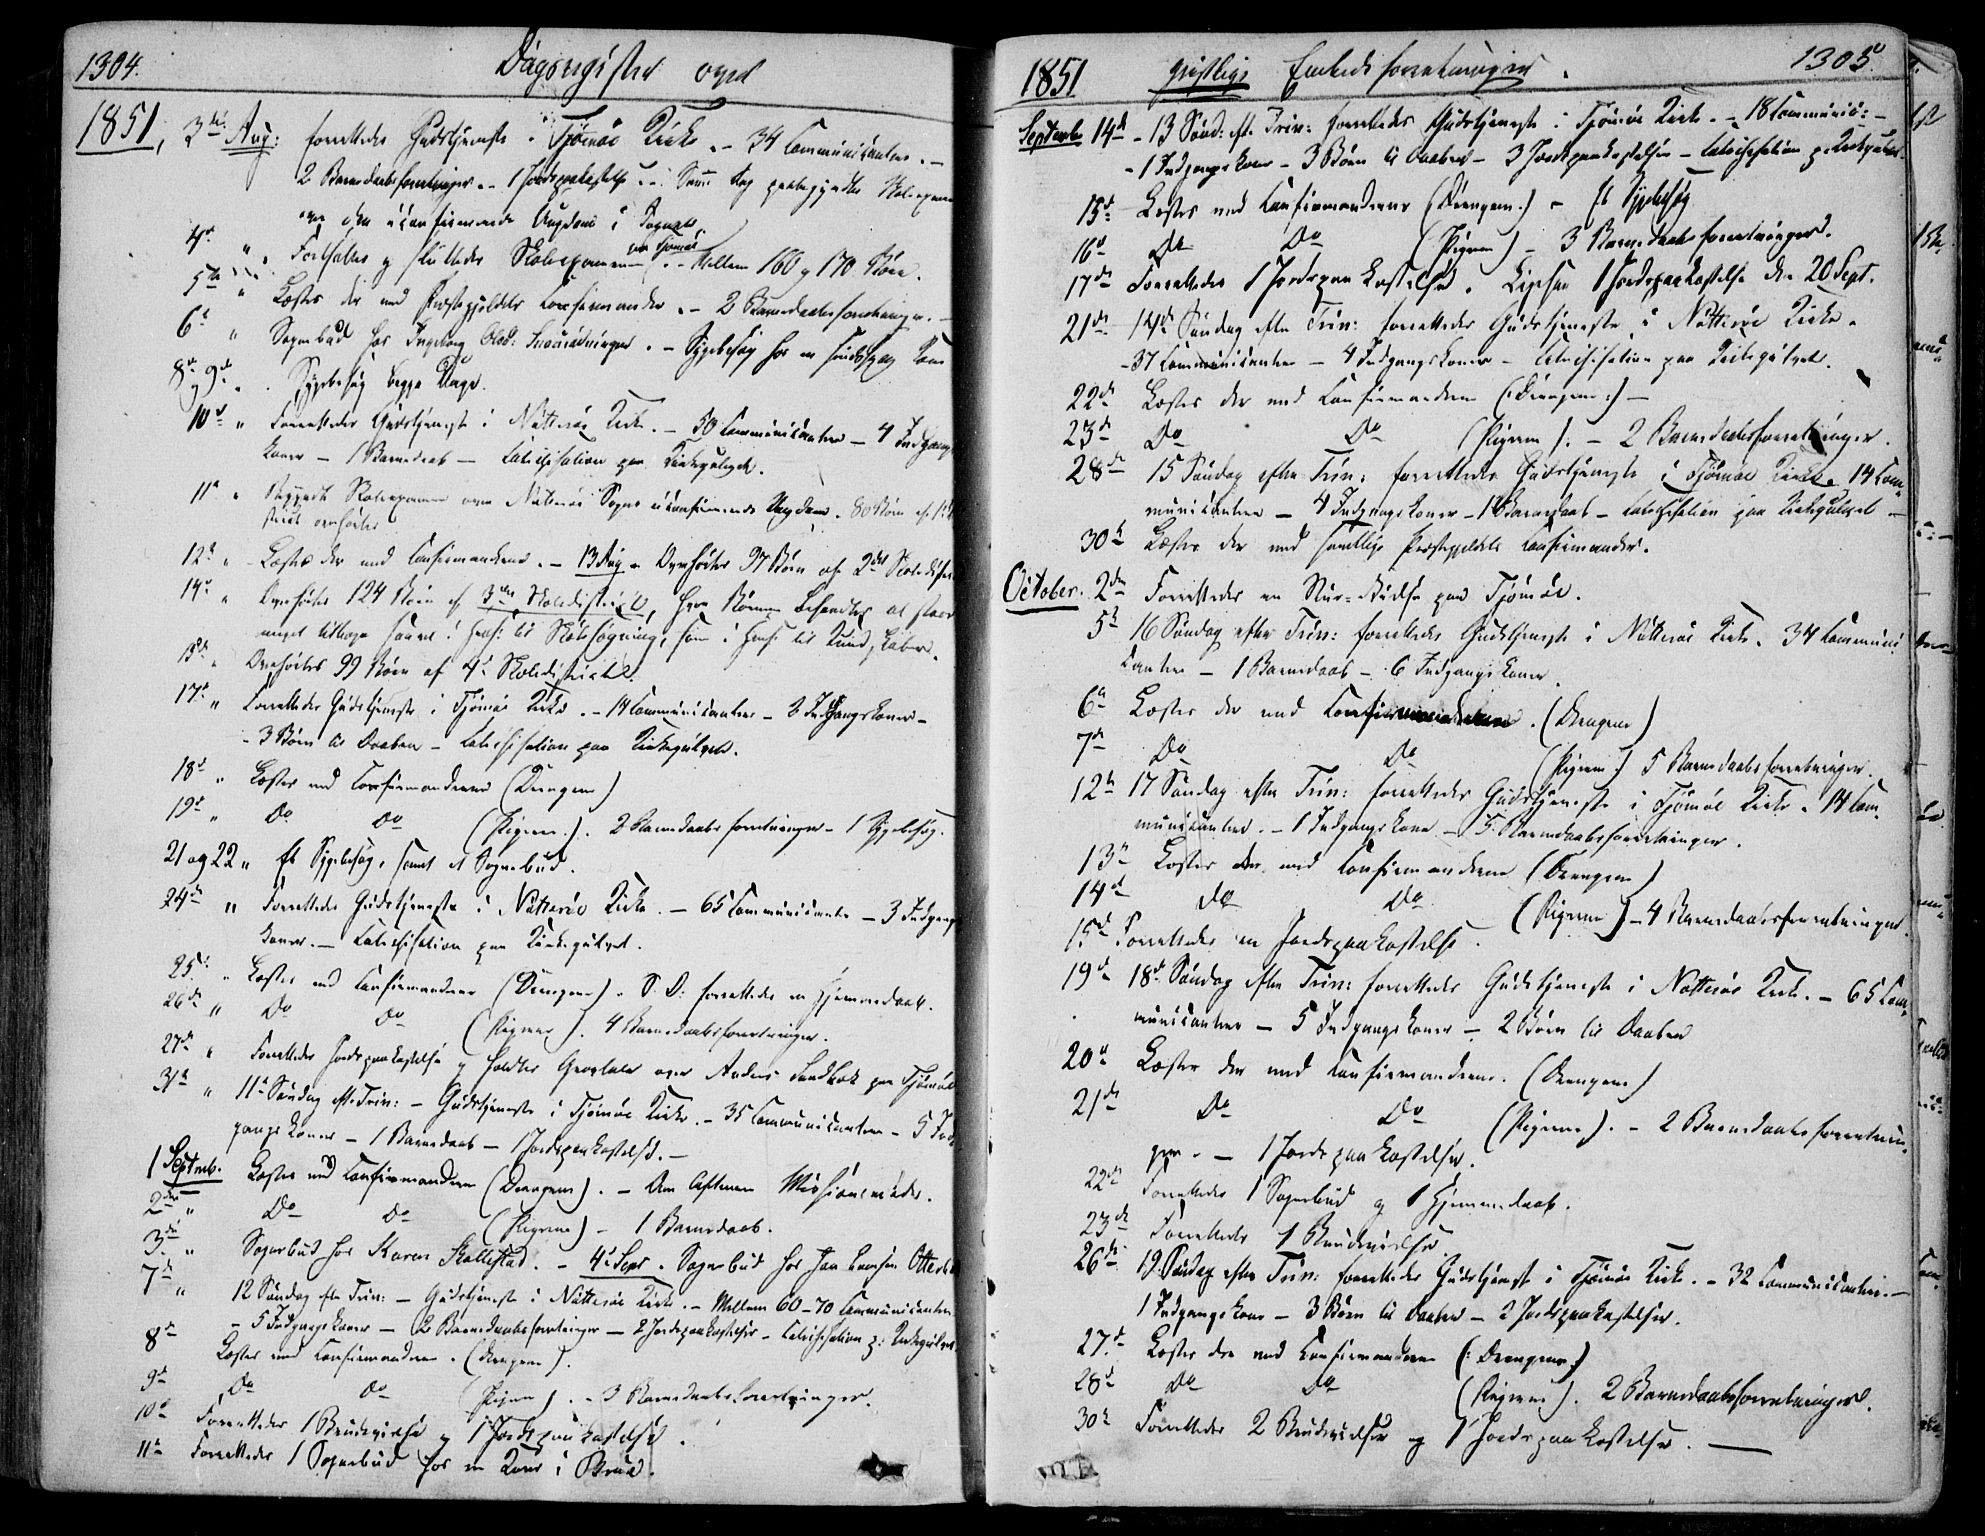 1304.
Dagregister over
1851, 3die Aug: forrettedes Gudstjeneste i Tjømøe Kirke. – 34 Communicanter. –
2 Barnedaabsforretninger. – 1 Jordpaakastelse. – Samme Dag paabegyndtes Skoleexamen
over den uconfirmerede Ungdom i Sognet
4de " Fortsattes og sluttedes Skoleexamen paa Tjømøe. – Mellem 160 og 170 Børn.
5te " Læstes der med Præstegjeldets Confirmander. – 2 Barnedaabsforretninger. –
6te " Sognebud hos Ingeborg Olsd: – Sygebesøg hos en
8de og 9de " Sygebesøg begge Dage.
10de " Forrettedes Gudstjeneste i Nøtterøe Kirke. – 50 Communicanter – 4 Indgangs
koner – 1 Barnedaab – Catechisation paa Kirkegulvet.
11te " Skoleexamen over Nøtterøe Sogns uconfirmerede Ungdom. 80 Børn af 1ste
12te " Læstes der med Confirmanderne. – 13 Aug. Overhørtes 97 Børn af 2det Skoledistrict
14de " Overhørtes 124 Børn af 3die Skoledistrict, hvor Børnene befandtes at staae
meget tilbage saavel i Hens: til Skolesøgning, som i Hens: til Kundskaber.
15de " Overhørtes 99 Børn af 4de Skoledistrict.
17de " Forrettedes Gudstjeneste i Tjømøe Kirke. – 14 Communicanter – 3 Indgangskoner –
– 3 Børn til Daaben – Catechisation paa Kirkegulvet.
18de " Læstes med Confirmanderne (Drengene)
19de " Do Do (Pigerne). 2 Barnedaabsforretninger – 1 Sygebesøg.
21 og 22 " Et Sygebesøg, samt et Sognebud.
24de " Forrettedes Gudstjeneste i Nøtterøe Kirke. – 65 Communicanter – 3 Indgangs
koner. – Catechisation paa Kirkegulvet.
25de " Læstes med Confirmanderne (Drengene). S. D: forrettedes en Hjemmedaab.
26de " Do Do (Pigerne). 4 Barnedaabsforretninger.
27de " Forrettedes Jordpaakastelse og holdtes Gravtale over Anders Sandbæk paa Tjømøe
31te " 11te Søndag eft. Trin: – Gudstjeneste i Tjømøe Kirke. – 35 Communicanter – 5 Ind
gangskoner – 1 Barnedaab – 1 Jordpaakastelse. –
1 Septmb. Læstes med Confirmanderne (Drengene). – Om Aftenen Missionsmøde.
2den " Do Do (Pigerne) – 1 Barnedaab.
3die " Sognebud hos Karen Skallestad. – 4de Sept. Sognebud hos
7de " 12 Søndag eft. Trin: – Gudstjeneste i Nøtterøe Kirke. – Mellem 60–70 Communicanter
– 5 Indgangskoner – 2 Barnedaabsforretninger – 2 Jordpaakastelser – Catechisation p: Kirkegulvet
8de Læstes med Confirmanderne. (Drengene).
9de Do Do (Pigerne). – 3 Barnedaabsforretninger.
10de Forrettedes 1 Brudevielse og 1 Jordpaakastelse.
11te Forrettedes 1 Sognebud hos en Kone i
1851 geistlige Embedsforretninger. 1305
Septembr 14de – 13 Sønd: eft. Trin: forrettedes Gudstjeneste i Tjømøe Kirke. – 18 Communic: –
– 1 Indgangskone – 3 Børn til Daaben – 3 Jordpaakastelser – Catechisation p. Kirkegulvet
15de Læstes med Confirmanderne (Drengene.) – Et Sygebesøg
16de Do Do (Pigerne) – 3 Barnedaabsforretninger.
17de Forrettedes 1 Jordpaakastelse. Ligesaa 1 Jordpaakastelse den 20 Sept.
21de 14de Søndag efter Trin: forrettedes Gudstjeneste i Nøtterøe Kirke.
– 37 Communicanter – 4 Indgangskoner – Catechisation paa Kirkegulvet.
22de Læstes der med Confirmanderne (Drengene:) –
23de Do Do (Pigerne). – 2 Barnedaabsforretninger.
28de 15 Søndag efter Trin: forrettedes Gudstjeneste i Tjømøe Kirke. 14 Com
municanter – 4 Indgangskoner – 1 Barnedaab – Catechisation paa Kirkegulvet –
30te Læstes der med samtlige Præstegjeldets Confirmander.
October. 2den Forrettedes en paa Tjømøe.
5te 16 Søndag efter Trin: forrettedes Gudstjeneste i Nøtterøe Kirke. 34 Communi
canter – 1 Barnedaab – 6 Indgangskoner.
6te Læstes der med Confirmanderne. (Drengene)
7de Do Do (Pigerne) 5 Barnedaabsforretninger.
12te 17 Søndag efter Trin: forrettedes Gudstjeneste i Tjømøe Kirke. 14 Com
municanter. – 1 Indgangskone – 5 Barnedaabsforretninger.
13de Læstes der med Confirmanderne (Drengene)
14de Do Do (Pigerne) – 4 Barnedaabsforretninger.
15de Forrettedes en Jordpaakastelse.
19de 18de Søndag efter Trin: forrettedes Gudstjeneste i Nøtterøe Kirke. – 65 Com
municanter – 5 Indgangskoner – 2 Børn til Daaben
20de Læstes der med Confirmanderne. (Drengene)
21de Do Do (Pigerne). – 2 Barnedaabsforretnin
ger. – 1 Jordpaakastelse.
22de Forrettedes 1 Sognebud og 1 Hjemmedaab.
23de Forrettedes 1 Brudevielse
26de 19 Søndag efter Trin: forrettedes Gudstjeneste i Tjømøe Kirke. – 32 Communicanter. –
1 Indgangskone – 3 Børn til Daaben – 2 Jordpaakastelser.
27de Læstes der med Confirmanderne (: Drengene:)
28de Do Do (Pigerne). 2 Barnedaabsforretninger.
30te Forrettedes 2 Brudevielser og 1 Jordpaakastelse. –